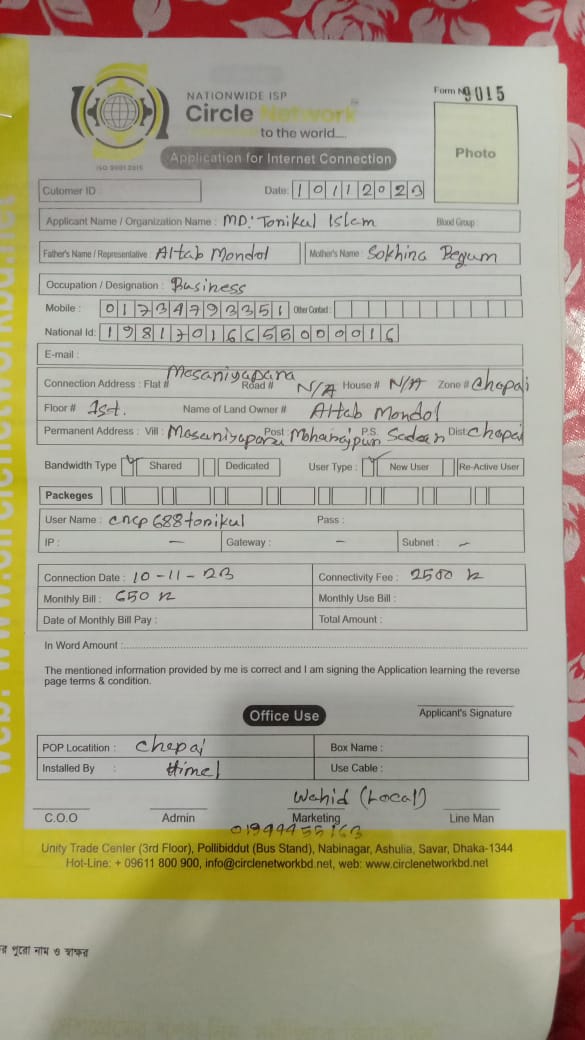 NATIONWIDE ISP
Circle Network
to the world....
ISO 9001:2015
Form No 9015
Application for Internet Connection
Photo
Cutomer ID
Date: 10112023
Applicant Name / Organization Name : MD: Tonikul Islam Blood Group :
Father's Name / Representative : Altab Mondol Mother's Name : Sokhina Begum
Occupation / Designation : Business
Mobile : 01734793351 Other Contact :
National Id: 19817016555000016
E-mail :
Connection Address : Flat # Masaniyapara Road # N/A House # N/A Zone # Chapai
Floor # 1st. Name of Land Owner # Altab Mondol
Permanent Address : Vill : Masaniyapara Post : Moharajpur P.S. Sadar Dist: Chapai
Bandwidth Type Shared Dedicated User Type : New User Re-Active User
Packeges
User Name : cncp688tonikul Pass :
IP : — Gateway : — Subnet : —
Connection Date : 10-11-23 Connectivity Fee : 2500 tk
Monthly Bill : 650 tk Monthly Use Bill :
Date of Monthly Bill Pay : Total Amount :
In Word Amount :
The mentioned information provided by me is correct and I am signing the Application learning the reverse
page terms & condition.
Office Use
Applicant's Signature
POP Locatition : Chapai Box Name :
Installed By : Himel Use Cable :
Wahid (Local)
C.O.O Admin Marketing Line Man
Unity Trade Center (3rd Floor), Pollibiddut (Bus Stand), Nabinagar, Ashulia, Savar, Dhaka-1344
Hot-Line: + 09611 800 900, info@circlenetworkbd.net, web: www.circlenetworkbd.net
web: www.circlenetworkbd.net
পুরো নাম ও স্বাক্ষর